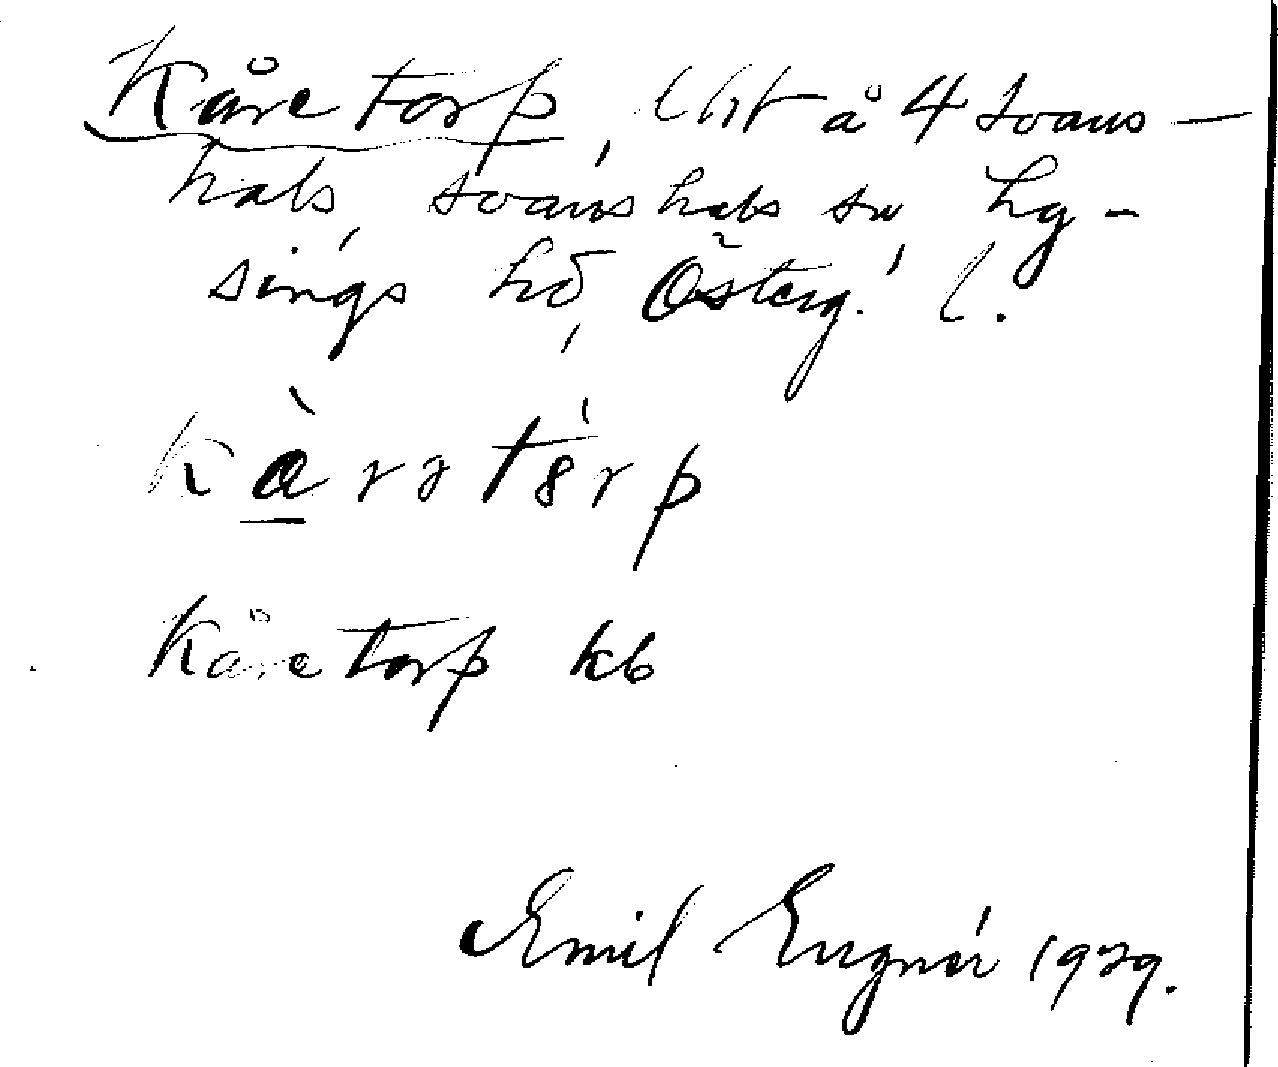 Kåretorp, lht å 4 svans-
hals, svanshals sn Hg-
sings hd, Österg. l.
Kåretorp kb
Emil Engnér 1929.